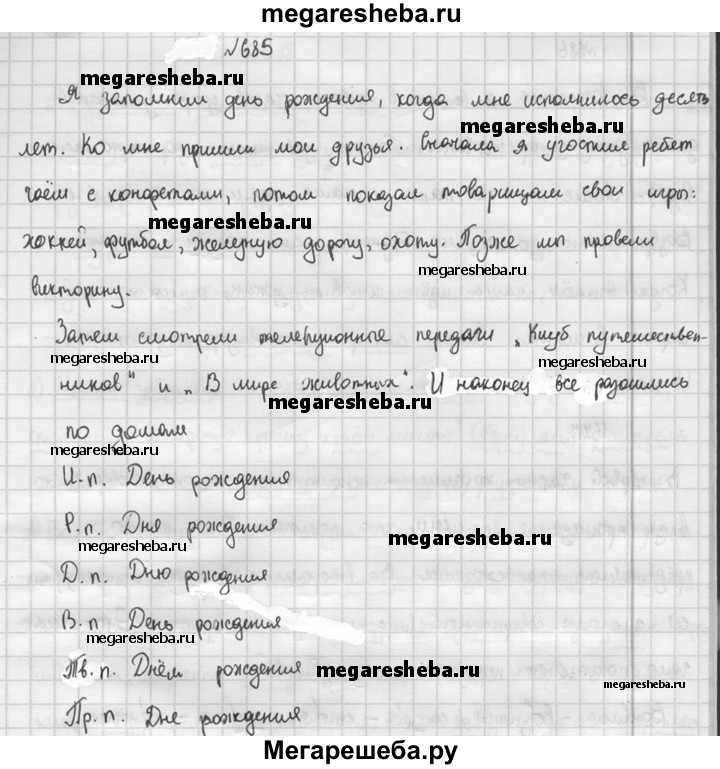 megaresheba.ru
№685
megaresheba.ru
Я запомнил день рождения, когда мне исполнилось десять
megaresheba.ru
лет. Ко мне пришли мои друзья. Вначала я угостил ребят
чаем с конфетами, потом показал товарищам свои игры:
megaresheba.ru
хоккей, футбол, железную дорогу, охоту. Позже мы провели
megaresheba.ru
викторину.
Затем смотрели телевизионные передачи „Клуб путешествен-
megaresheba.ru
megaresheba.ru
ников" и „В мире животных". И наконец все разошлись
megaresheba.ru
по домам
И.п. День рождения
Р.п. Дня рождения
megaresheba.ru
megaresheba.ru
Д.п. Дню рождения
В.п День рождения
megaresheba.ru
Тв.п. Днём рождения
megaresheba.ru
megaresheba.ru
Пр.п. Дне рождения
Мегарешеба.ру